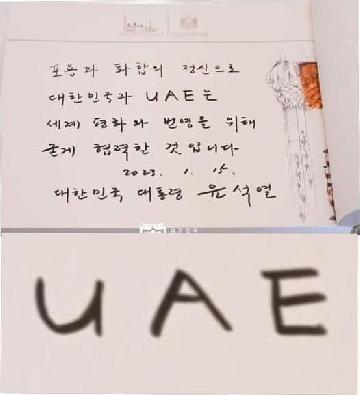 포용과 화합의 정신으로
대한민국과 UAE는
세계 평화와 번영을 위해
굳게 협력할 것입니다
2023. 1. 15.
대한민국 대통령 윤석열
UAE